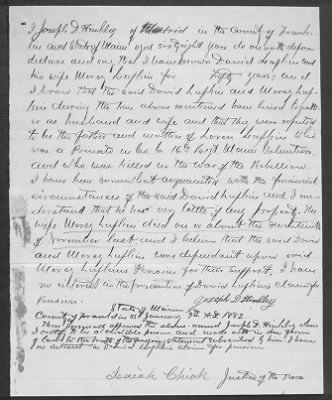 I Joseph D. Hinkley of Madrid in the County of Frank-
lin and State of Maine aged sixty eight years do on oath depose
declare and say that I have known David Lufkin and
his wife Mercy Lufkin for Fifty years, and
I know that the said David Lufkin and Mercy Luf-
kin during the time above mentioned have lived together
as husband and wife and that they were reputed
to be the father and mother of Loren Lufkin who
was a Private in Co. 16th Reg't Maine Volunteers
and who was killed in the War of the Rebellion.
I have been somewhat acquainted with the financial
circumstances of the said David Lufkin and I un-
derstand that he has very little if any property. His
wife Mercy Lufkin died on or about the seventeenth
of November last and I believe that the said David
and Mercy Lufkin was dependant upon said
Mercy Lufkins Pension for their support. I have
no interest in the prosecution of David Lufkins claim for
Pension. Joseph D. Hinkley
State of Maine
County of Franklin ss January 9th A.D. 1882
Then personally appeared the above named Joseph D. Hinkley whom
I certify to be a credible person and made oath in due form
of law to the truth of the foregoing statement subscribed by him. I have
no interest in David Lufkins claim for pension
Isaiah Chick Justice of the Peace